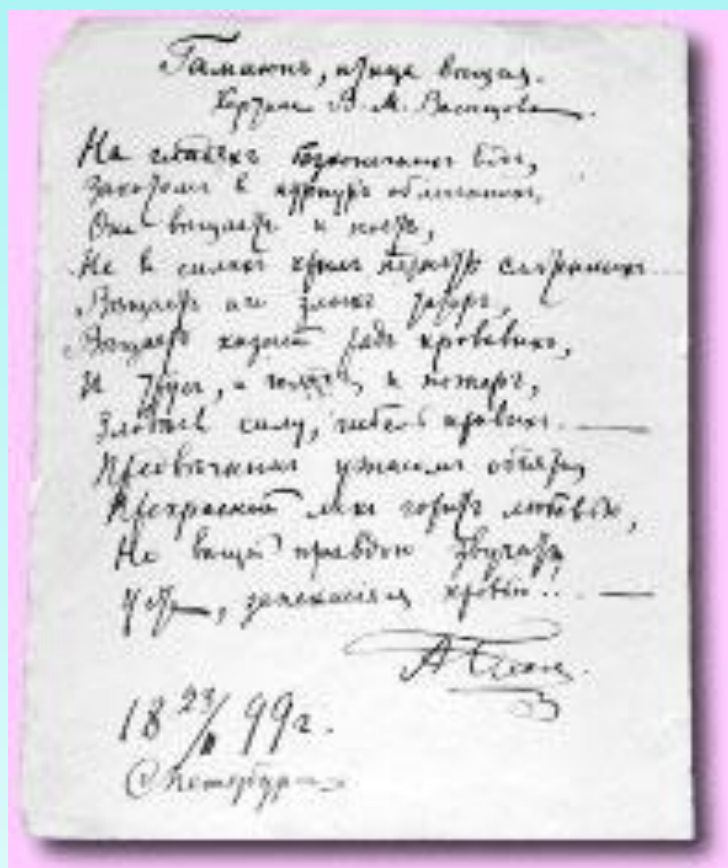 Гамаюнъ, птица вѣщая.
Картина В. М. Васнецова
На гладяхъ безконечныхъ водъ,
Закатомъ в пурпуръ облеченныхъ,
Она вѣщаетъ и поетъ,
Не в силахъ крылъ поднять смятенныхъ...
Вѣщаетъ иго злыхъ татаръ,
Вѣщаетъ казней рядъ кровавыхъ,
И трусъ, и голодъ, и пожаръ,
Злодѣевъ силу, гибель правыхъ...
Предвѣчнымъ ужасомъ объятъ,
Прекрасный ликъ горитъ любовью,
Но вѣщей правдою звучатъ
Уста, запекшіяся кровью!..
А Блокъ.
18 23/II 99 г.
С Петербургъ